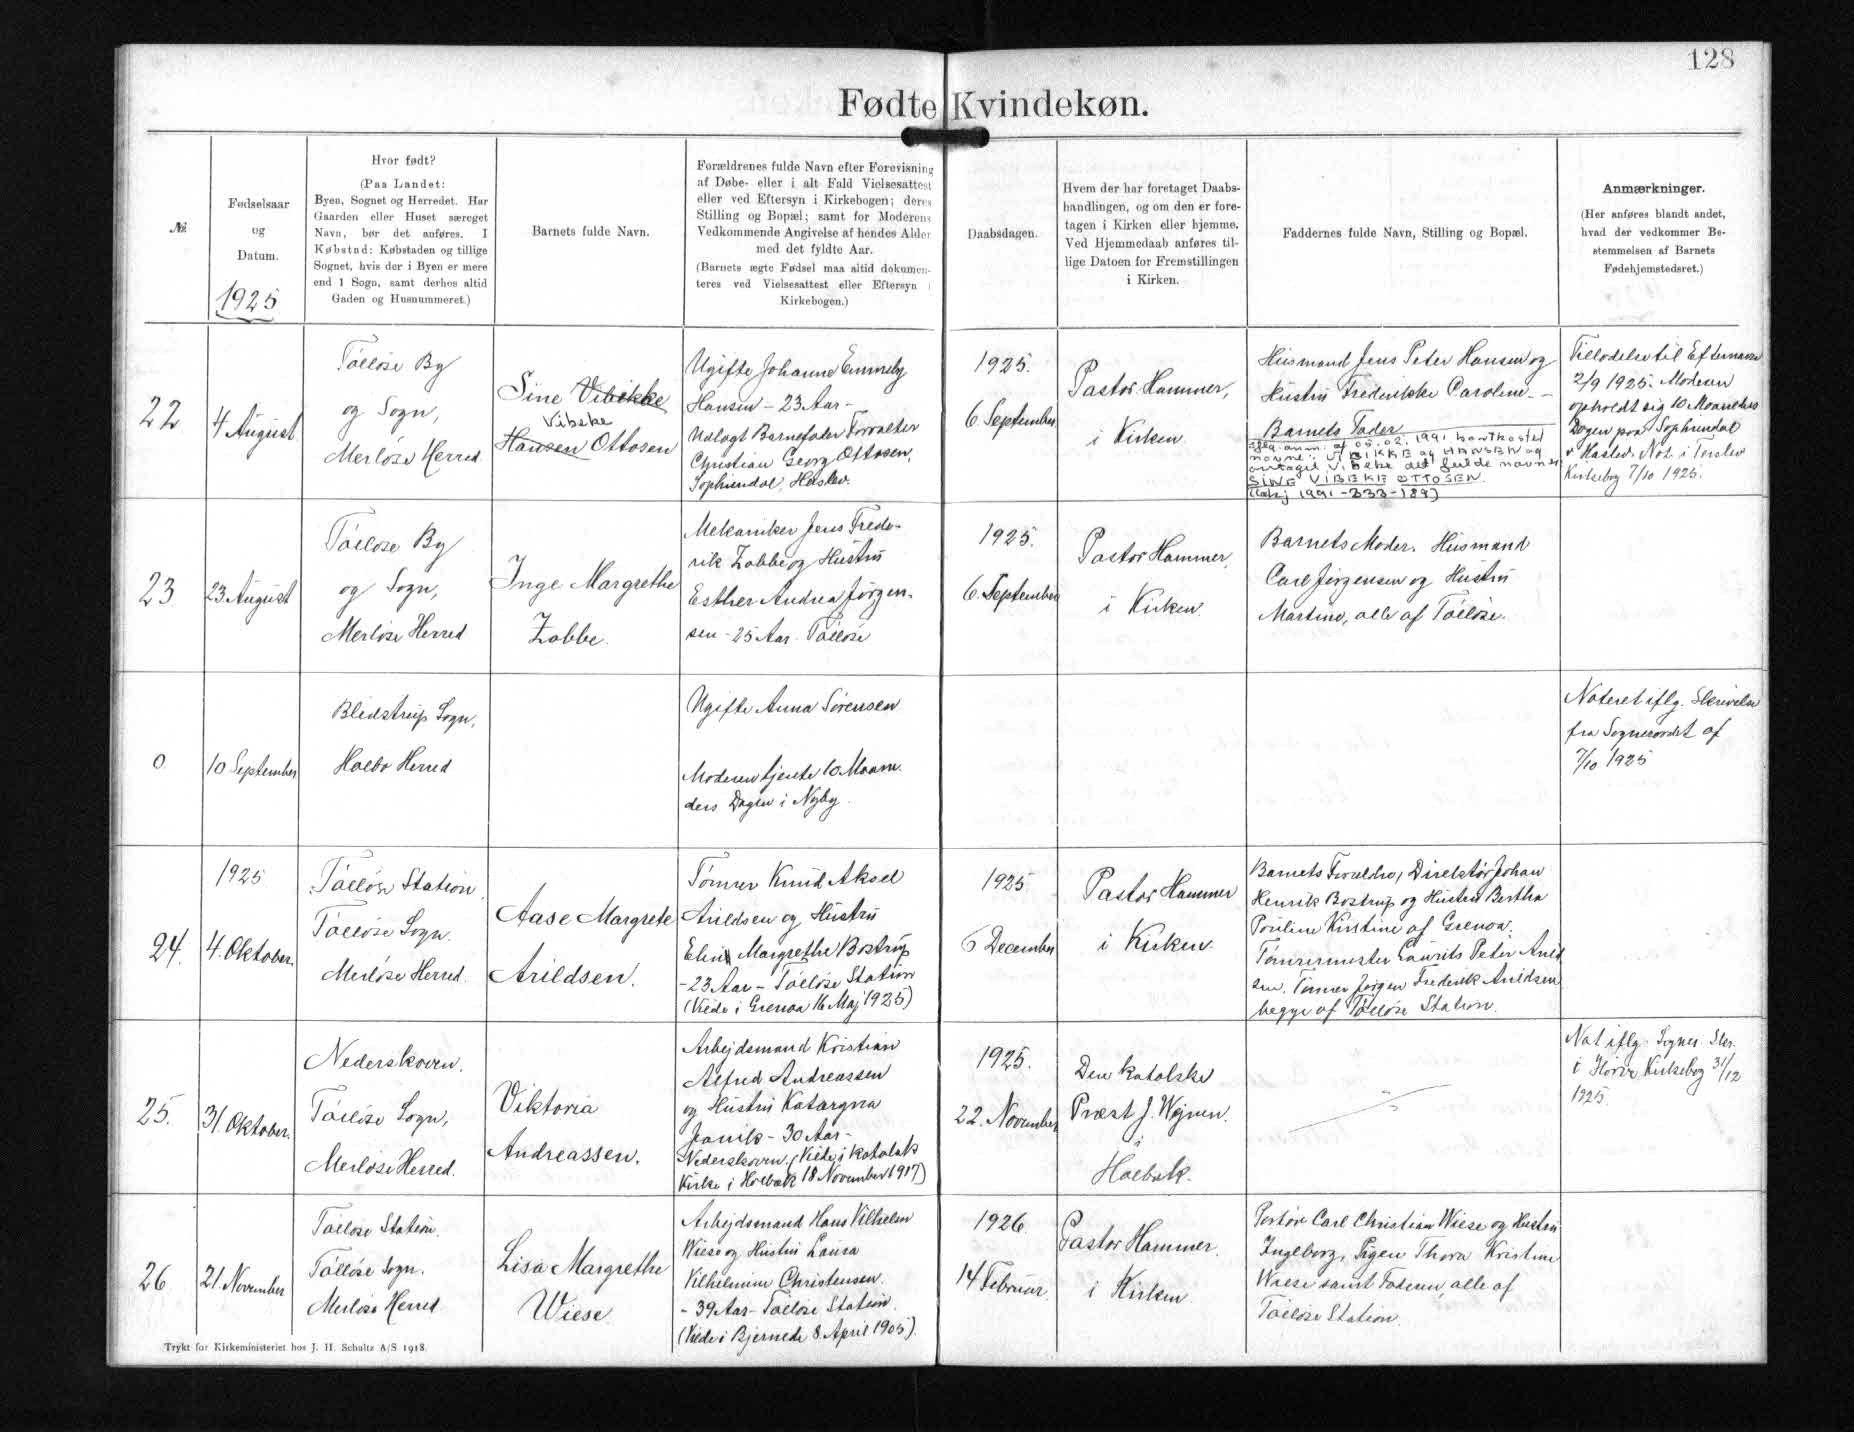 128
Fødte Kvindekøn.
№
Fødselsaar
og
Datum.
1925
Hvor født?
(Paa Landet:
Byen, Sognet og Herredet. Har
Gaarden eller Huset særeget
Navn, bør det anføres. I
Købstad: Købstaden og tillige
Sognet, hvis der i Byen er mere
end 1 Sogn, samt derhos altid
Gaden og Husnummeret.)
Barnets fulde Navn.
Forældrenes fulde Navn efter Forevisning
af Døbe- eller i alt Fald Vielsesattest
eller ved Eftersyn i Kirkebogen; deres
Stilling og Bopæl; samt for Moderens
Vedkommende Angivelse af hendes Alder
med det fyldte Aar.
(Barnets ægte Fødsel maa altid dokumen-
teres ved Vielsesattest eller Eftersyn i
Kirkebogen.)
Daabsdagen.
Hvem der har foretaget Daabs-
handlingen, og om den er fore-
tagen i Kirken eller hjemme.
Ved Hjemmedaab anføres til-
lige Datoen for Fremstillingen
i Kirken.
Faddernes fulde Navn, Stilling og Bopæl.
Anmærkninger.
(Her anføres blandt andet,
hvad der vedkommer Be-
stemmelsen af Barnets
Fødehjemstedsret.)
22
4 August
Tølløse By
og Sogn,
Merløse Herred
Sine Vibekke
Vibeke
Hansen Ottosen
Ugifte Johanne Emmely
Hansen - 23 Aar -
Udlagt Barnefader Forvalter
Christian Georg Ottosen,
Sophiendal, Haslev.
1925.
6 September
Pastor Hammer,
i Kirken
Husmand Jens Peter Hansen og
Hustru Frederikke Caroline. -
Barnets Fader
iflg. anm. af 05.02.1991 bortkastet
navne: VIBIKKE og HANSEN og
antaget Vibeke det fulde navn:
SINE VIBEKE OTTOSEN.
1991-333-189)
Tilladelse til Efternavn
2/9 1925. Moderen
opholdt sig 10 Maaneders
Dagen paa Sophiendal
v. Haslev. Not. i Terslev
Kirkebog 7/10 1925.
23
23 August
Tølløse By
og Sogn,
Merløse Herred
Inge Margrethe
Zobbe.
Mekaniker Jens Frede-
rik Zobbe og Hustru
Esther Andrea Jørgen-
sen - 25 Aar - Tølløse
1925.
6. September
Pastor Hammer,
i Kirken
Barnets Moder. Husmand
Carl Jørgensen og Hustru
Martine, alle af Tølløse.
0
10 September
Blidstrup Sogn,
Holbo Herred
Ugifte Anna Sørensen
Moderen tjente 10 Maane-
ders Dagen i Nyby.
Noteret iflg. Skrivelse
fra Sogneraadet af
7/10 1925
24.
1925
4. Oktober.
Tølløse Station
Tølløse Sogn.
Merløse Herred.
Aase Margrete
Arildsen.
Tømrer Knud Aksel
Arildsen og Hustru
Elin Margrethe Bostrup
- 23 Aar - Tølløse Station
(Viede i Grenaa 16 Maj 1925)
1925
6 December
Pastor Hammer
i Kirken
Barnets Forældre, Direktør Johan
Henrik Bostrup og Hustru Bertha
Pouline Kirstine af Grenaa.
Tømrermester Laurits Peter Arild
sen. Tømrer Jørgen Frederik Arildsen
begge af Tølløse Station.
25.
31. Oktober.
Nederskoven.
Tølløse Sogn,
Merløse Herred.
Viktoria
Andreassen.
Arbejdsmand Kristian
Alfred Andreassen
og Hustru Katargna
Janik - 30 Aar -
Nederskoven. (Viede i katolsk
Kirke i Holbæk 18 November 1917)
1925.
22. November
Den katolske
Præst J. Wijnen.
i
Holbæk.
"
Not iflg. Sogner. Skr.
i Kirkebog 31/12
1925.
26
21. November
Tølløse Station.
Tølløse Sogn.
Merløse Herred
Lisa Margrethe
Wiese
Arbejdsmand Hans Vilhelm
Wiese og Hustru Laura
Vilhelmine Christensen.
- 39 Aar - Tølløse Station.
(Viede i Bjernede 8 April 1905).
1926
14 Februar.
Pastor Hammer.
i Kirken
Portør Carl Christian Wiese og Hustru
Ingeborg, Pigen Thora Kristine
Wiese samt Faderen, alle af
Tølløse Station.
Trykt for Kirkeministeriet hos J. H. Schultz A/S 1918.